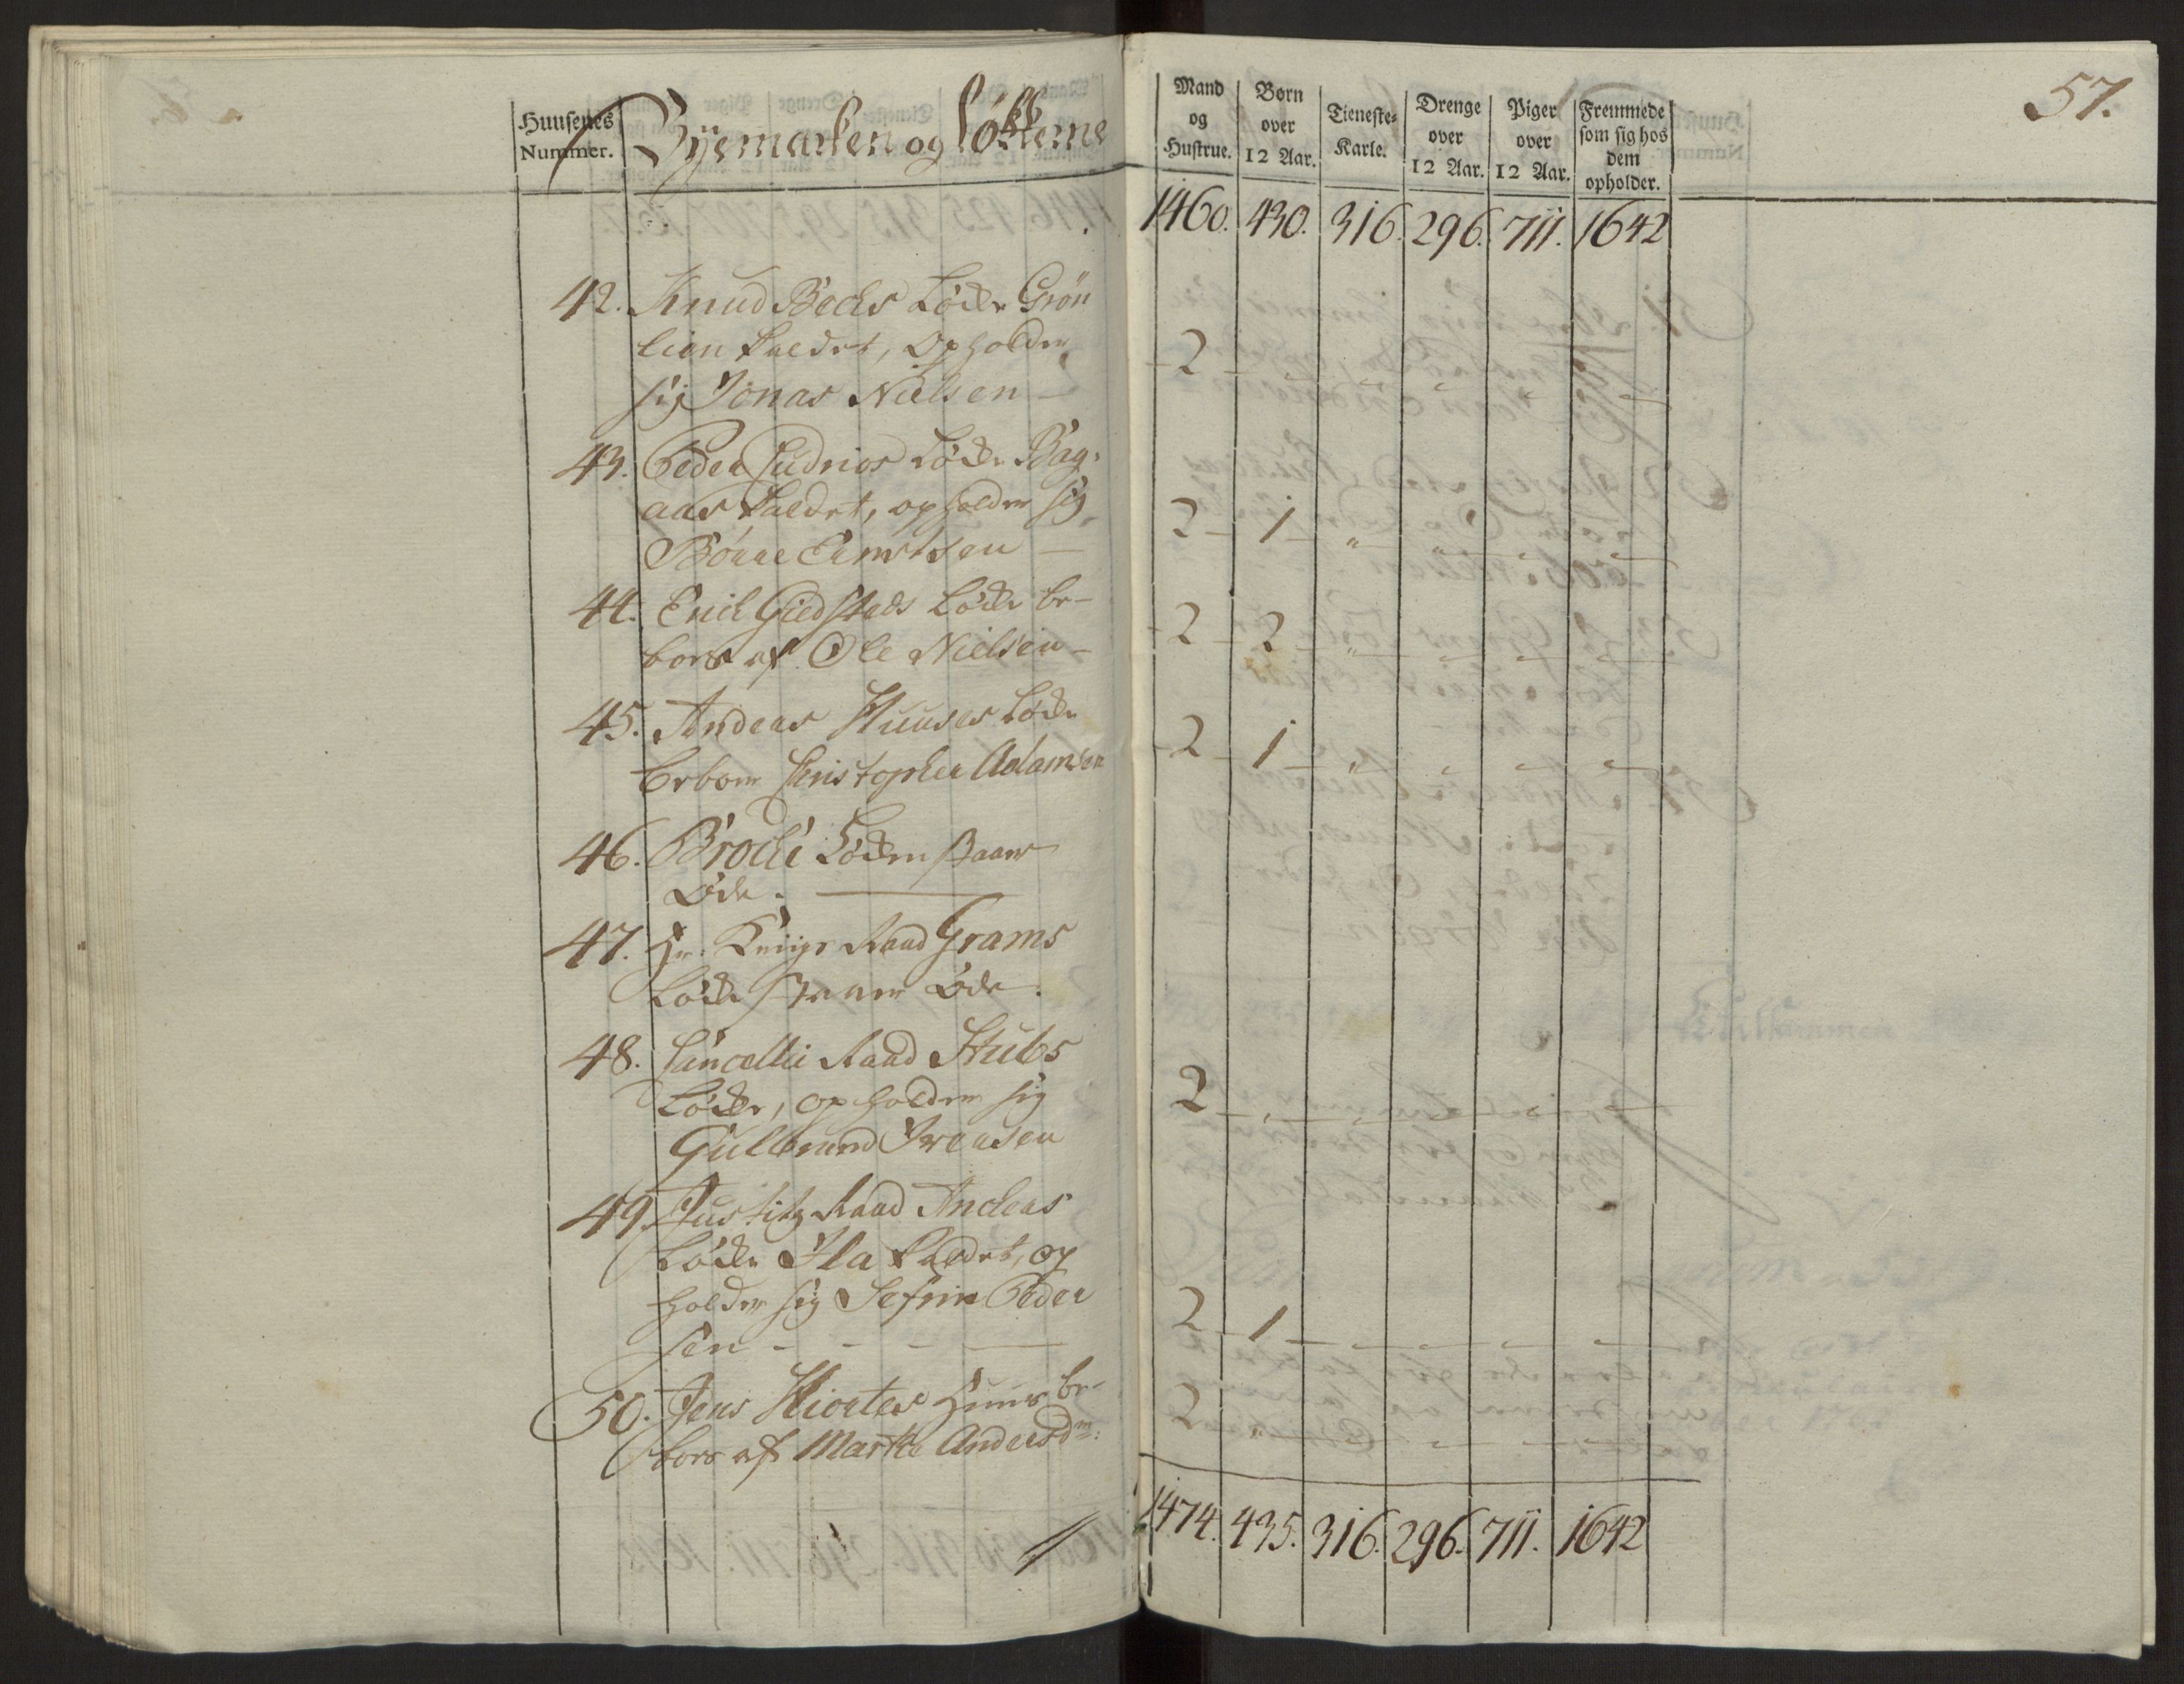 57.
Huusenes Nummer. Byemarken og Løkkerne
Mand og Hustrue. Børn over 12 Aar. Tieneste-Karle. Drenge over 12 Aar. Piger over 12 Aar. Fremmede som sig hos dem opholder.
1460. 430. 316. 296. 711. 1642
42. Knud Bechs Løcke Grön
lien kaldet, Opholder
sig Jonas Nielsen - 2 - " " " " "
43. Peder Ludvios Løcke Bag-
aas kaldet, opholder sig
Börre Evertsen - 2 - 1 - " " " "
44. Erich Giedsteds Løcke be-
boes af Ole Nielsen - 2 - 2 - " " " "
45. Andeas Huuses Løcke
beboer Christopher Adamsen - 2 - 1 - " " " "
46. Broche Løcken staaer
Øde.
47. Hr. Krigs Raad Grams
Løcke staaer Øde.
48. Cancellie Raad Stubs
Løcke, opholder sig
Gulbrand Iversen 2 - " " " " "
49. Justitz Raad Ancleas
Løcke Ila kaldet, op
holder sig Sefrin Peder
sen - - - - 2 - 1 - " " " "
50. Jens Hiortes Huus be-
boes af Marthe Andersdr: 2 " " " " "
1474. 435. 316. 296. 711. 1642